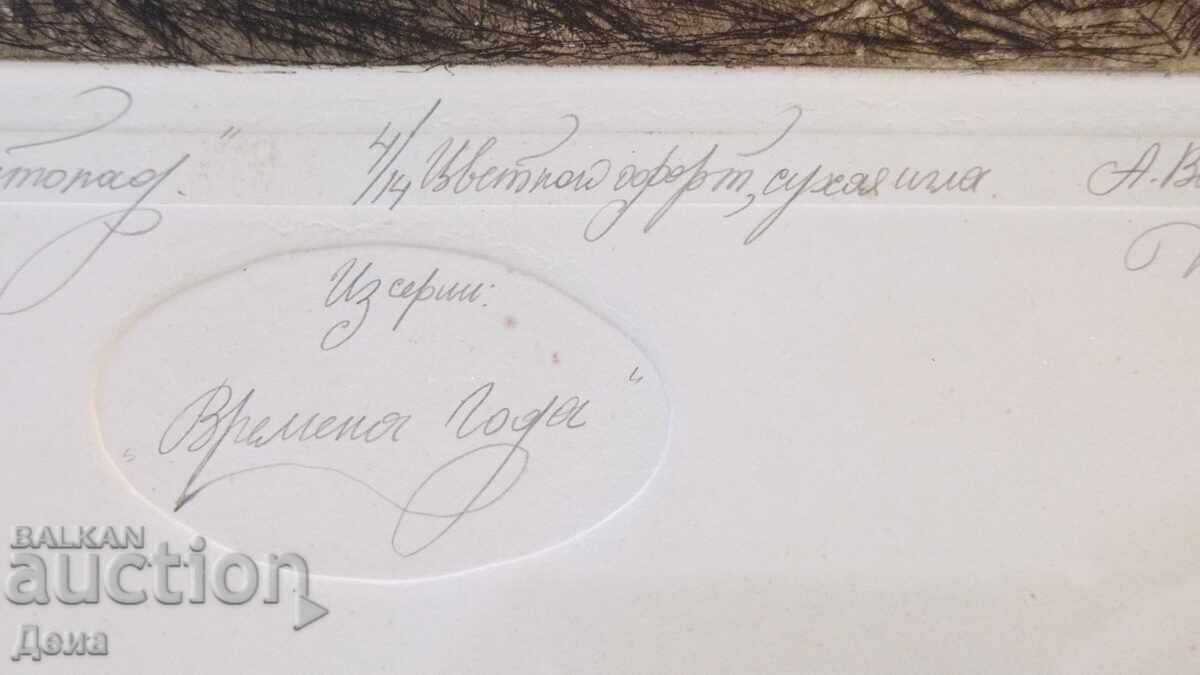 топад."
4/14 Цветной офорт, сухая игла.
А. В
Из серии:
"Времена Года"
BALKAN
auction
Деиа